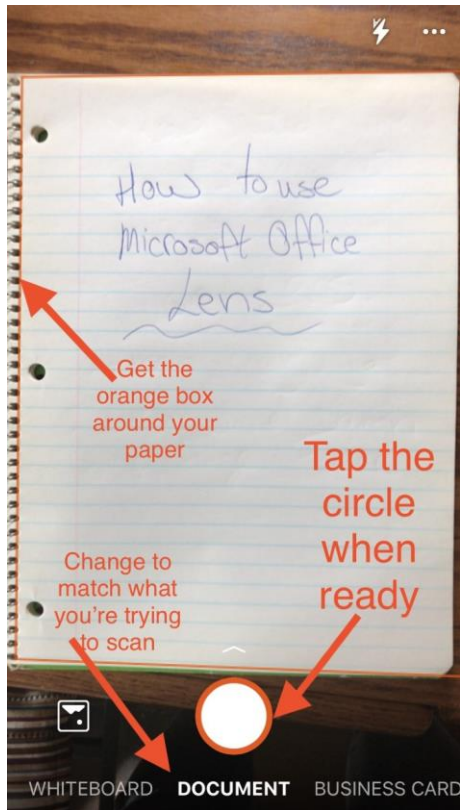 How to use
Microsoft Office
Lens
Get the
orange box
around your
paper
Tap the
circle
when
ready
Change to
match what
you're trying
to scan
WHITEBOARD DOCUMENT BUSINESS CARD